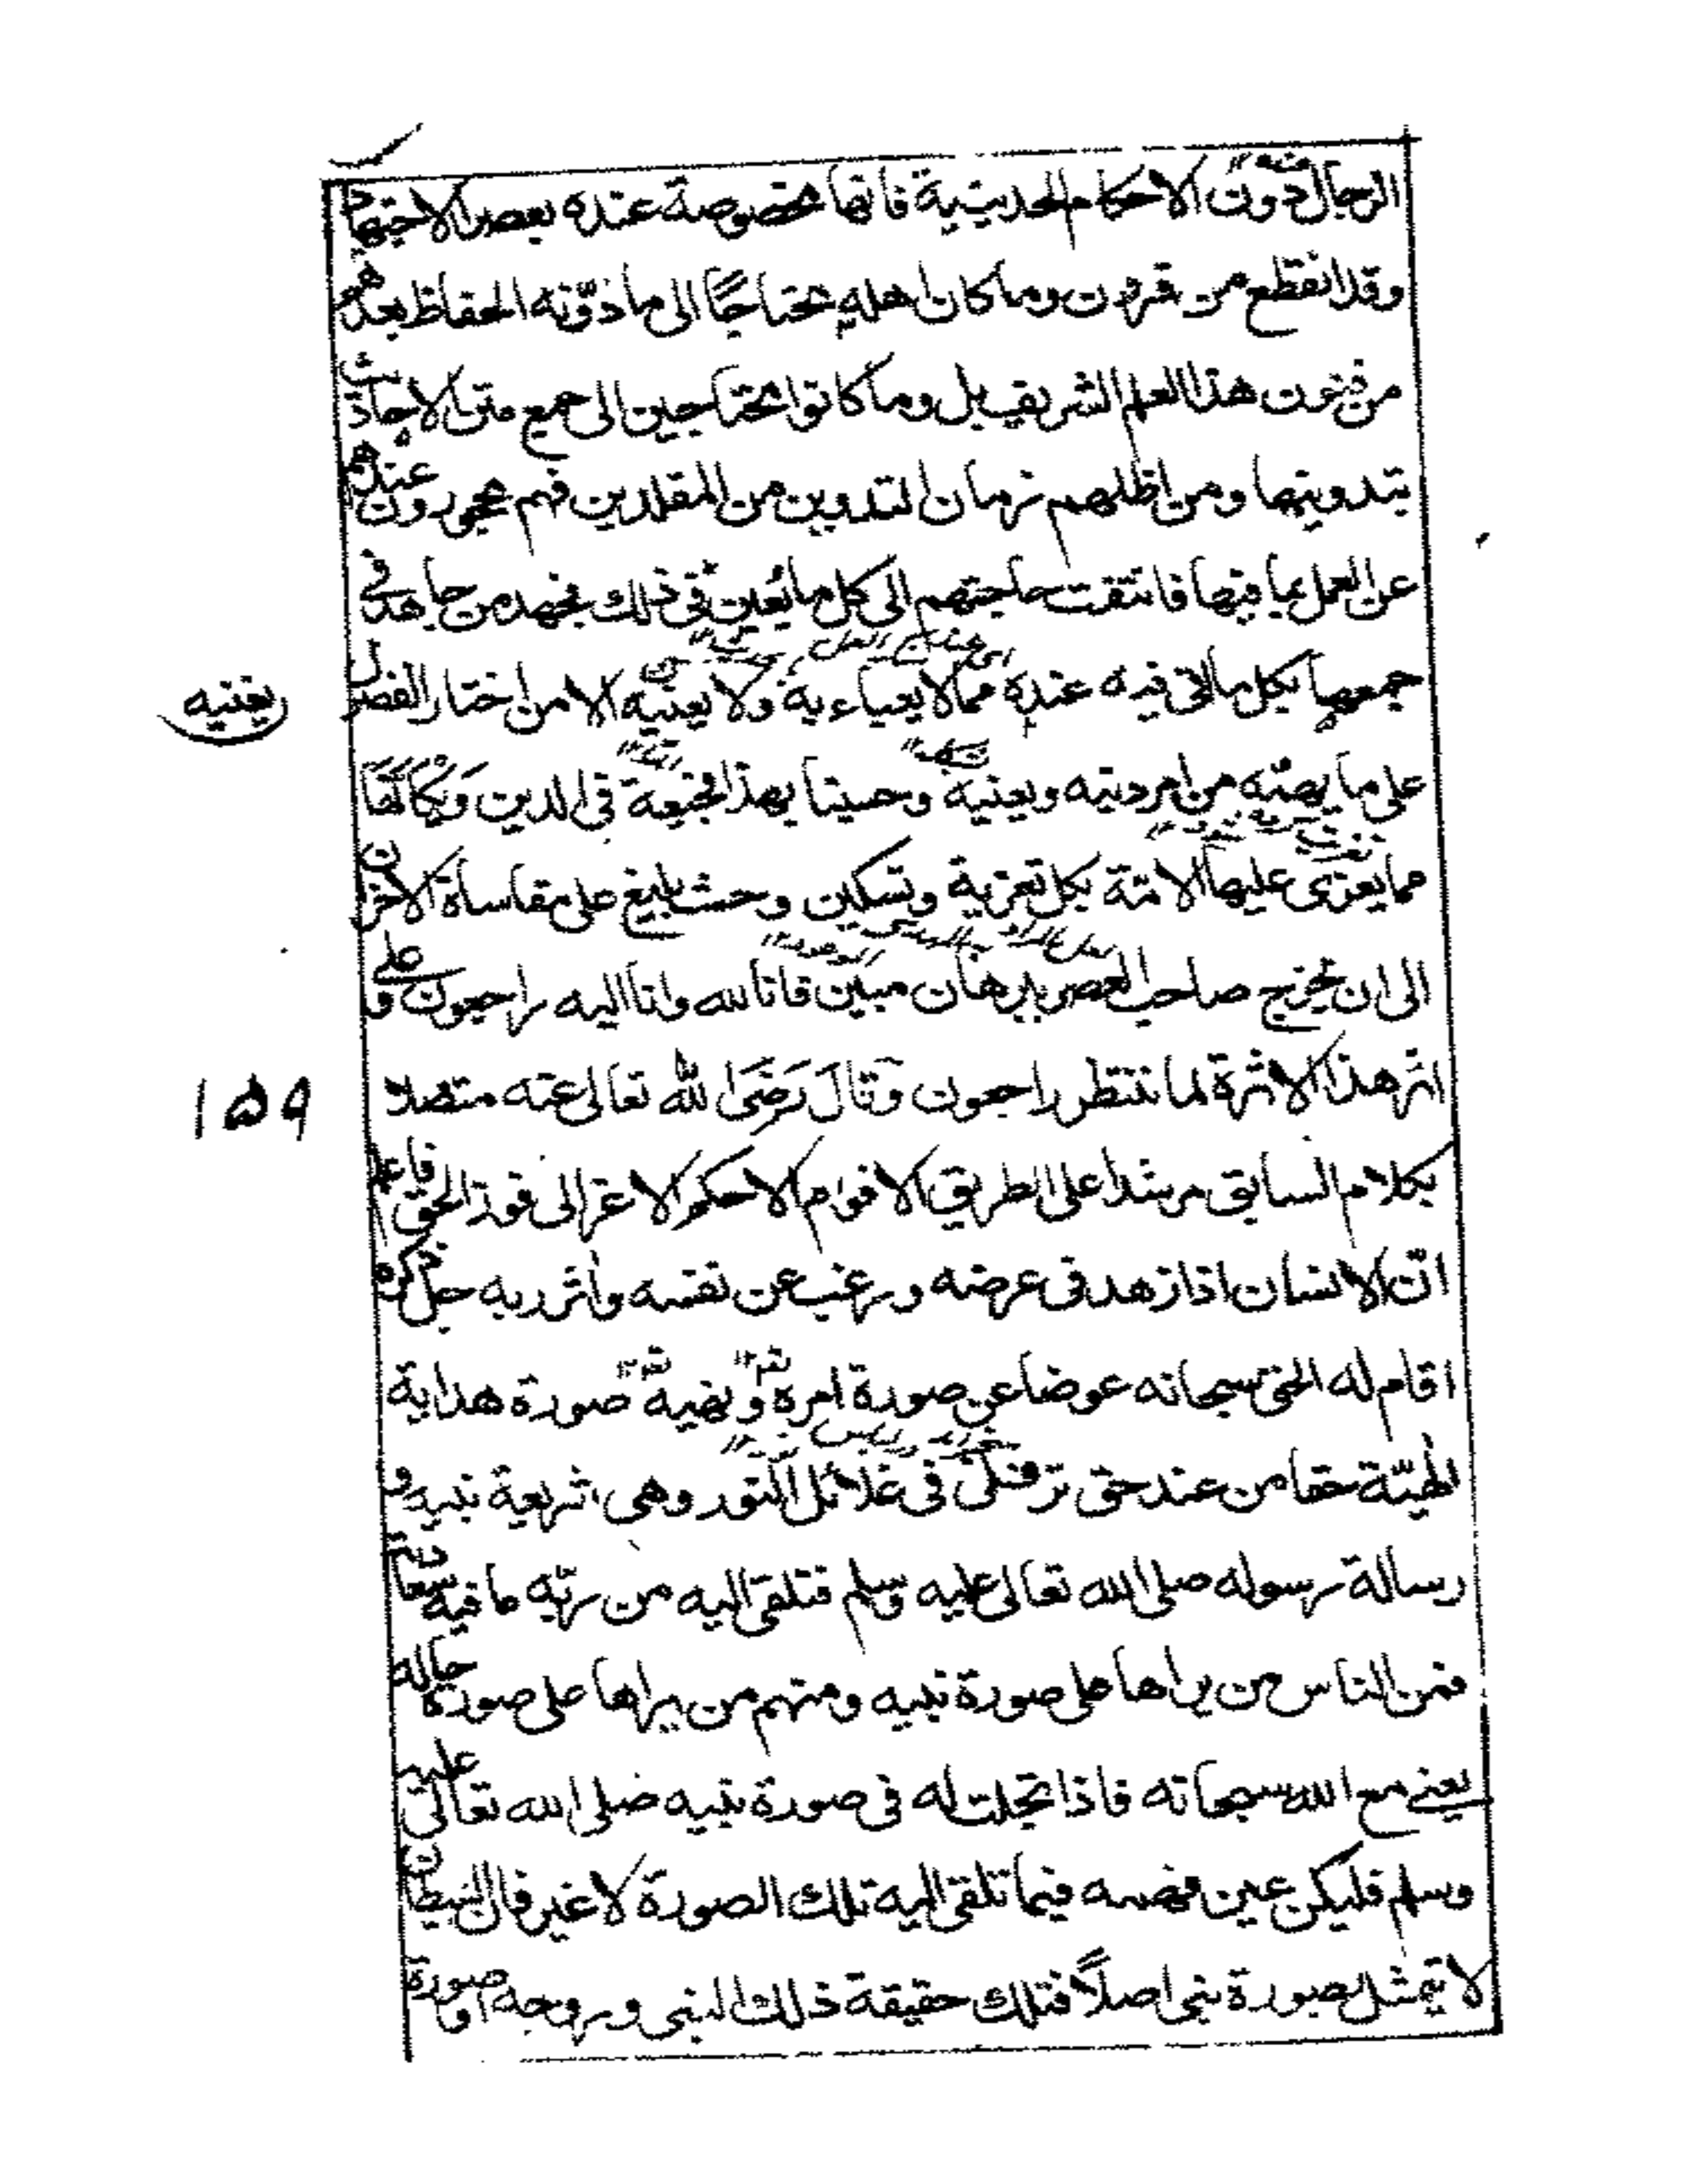 الرجال دون الاحكام الحديثية فانها مخصوصة عنده بعصر الاجتهاد
وقد انقطع من قرون وما كان اهله محتاجا الى ما دوّنه الحفاظ بعدهم
من فنون هذا العلم الشريف بل وما كانوا محتاجين الى جمع متن الاحاديث
بتدوينها ومن اظلهم زمان التدوين من المقلدين فهم محجورون عندهم
عن العمل بما فيها فانتفت حاجتهم الى كل ما يُعين في ذلك فجهد من جاهد في
جمعها بكل ما لاقى فيه عنده مما لا يعباء به ولا يعنيه الا من اختار الفضول
يغنيه
على ما يهمّه من امر دينه ويعنيه وحسبنا بهذا فجيعة في الدين وَيَكَا لَهَا
مما يعزى عليها الامّة بكل تعزية وتسكين وحث بليغ على مقاساة الاحزان
الى ان يخرج صاحب العصر ببرهان مبين فانا لله وانا اليه راجعون وعلى
اثر هذا الاثرة لما ننتظر راجعون وَقَالَ رَضَىَ الله تعالى عنه متصلا
١٥٩
بكلام السابق مرشدا على الطريق الاقوام الاحكم الاعز الى فوز الحق فاعلم
انّ الانسان اذا زهد في عرضه ورغب عن نفسه واٰثر ربه جل ذكره
اقام له الحق سبحانه عوضا عن صورة امره ونهيه صورة هداية
الٰهيّة حقا من عند حق ترفل في غلائل النور وهي شريعة نبيه و
رسالة رسوله صلى الله تعالى عليه وسلم فتلقى اليه من ربّه ما فيه سعادته
فمن الناس من يراها على صورة نبيه ومنهم من يراها على صورة حاله
يعني مع الله سبحانه فاذا تجلت له في صورة نبيه صلى الله تعالى عليه
وسلم فليكن عين فهمه فيما تلقى اليه تلك الصورة لا غير فان الشيطان
لا يتمثل بصورة نبي اصلاً فتلك حقيقة ذلك النبي وروحه او صورة